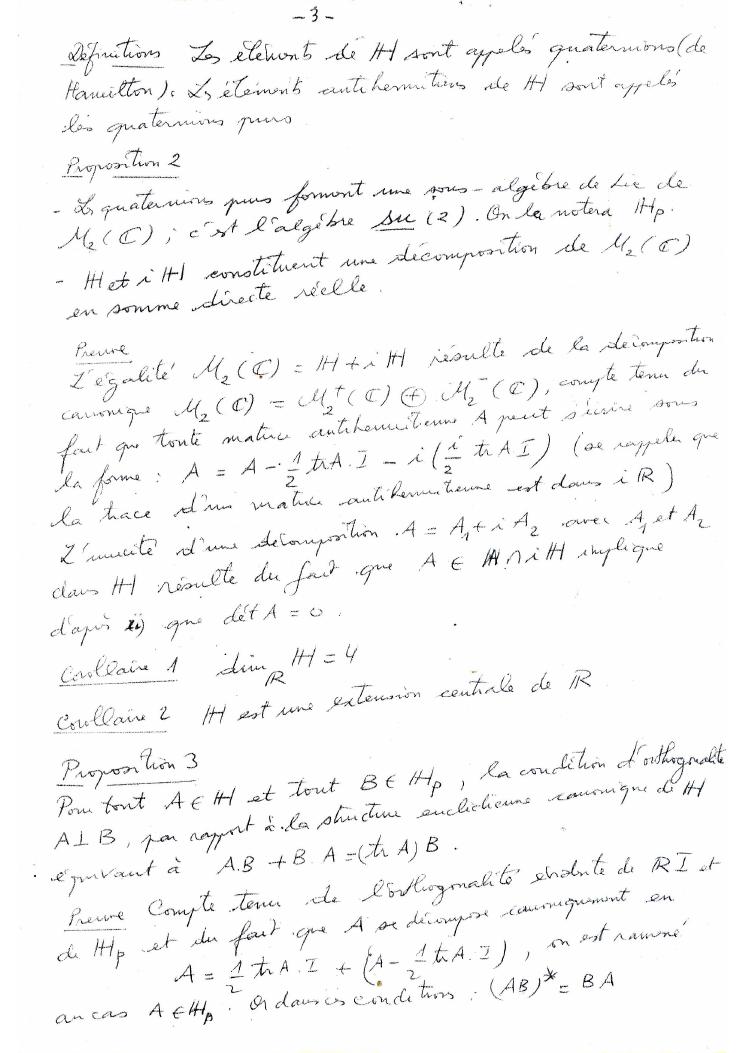 -3-
Définitions Les éléments de ℍ sont appelés quaternions (de
Hamilton). Les éléments antihermitiens de ℍ sont appelés
les quaternions purs
Proposition 2
- Les quaternions purs forment une sous-algèbre de Lie de
M₂(ℂ) ; c'est l'algèbre su(2). On la notera ℍp.
- ℍ et iℍ constituent une décomposition de M₂(ℂ)
en somme directe réelle.
Preuve
L'égalité M₂(ℂ) = ℍ + iℍ résulte de la décomposition
canonique M₂(ℂ) = M₂⁺(ℂ) ⊕ M₂⁻(ℂ), compte tenu du
fait que toute matrice antihermitienne A peut s'écrire sous
la forme : A = A - 1/2 trA.I - i(i/2 trA I) (se rappeler que
la trace d'une matrice antihermitienne est dans iℝ)
L'unicité d'une décomposition A = A₁ + iA₂ avec A₁ et A₂
dans ℍ résulte du fait que A ∈ ℍ∩iℍ implique
d'après ii) que dét A = 0.
Corollaire 1 dim_ℝ ℍ = 4
Corollaire 2 ℍ est une extension centrale de ℝ
Proposition 3
Pour tout A ∈ ℍ et tout B ∈ ℍp, la condition d'orthogonalité
A ⊥ B, par rapport à la structure euclidienne canonique de ℍ
équivaut à A.B + B.A = (tr A) B.
Preuve Compte tenu de l'orthogonalité évidente de ℝI et
de ℍp et du fait que A se décompose canoniquement en
A = 1/2 trA.I + (A - 1/2 trA.I), on est ramené
au cas A ∈ ℍp. Or dans ces conditions : (AB)* = BA